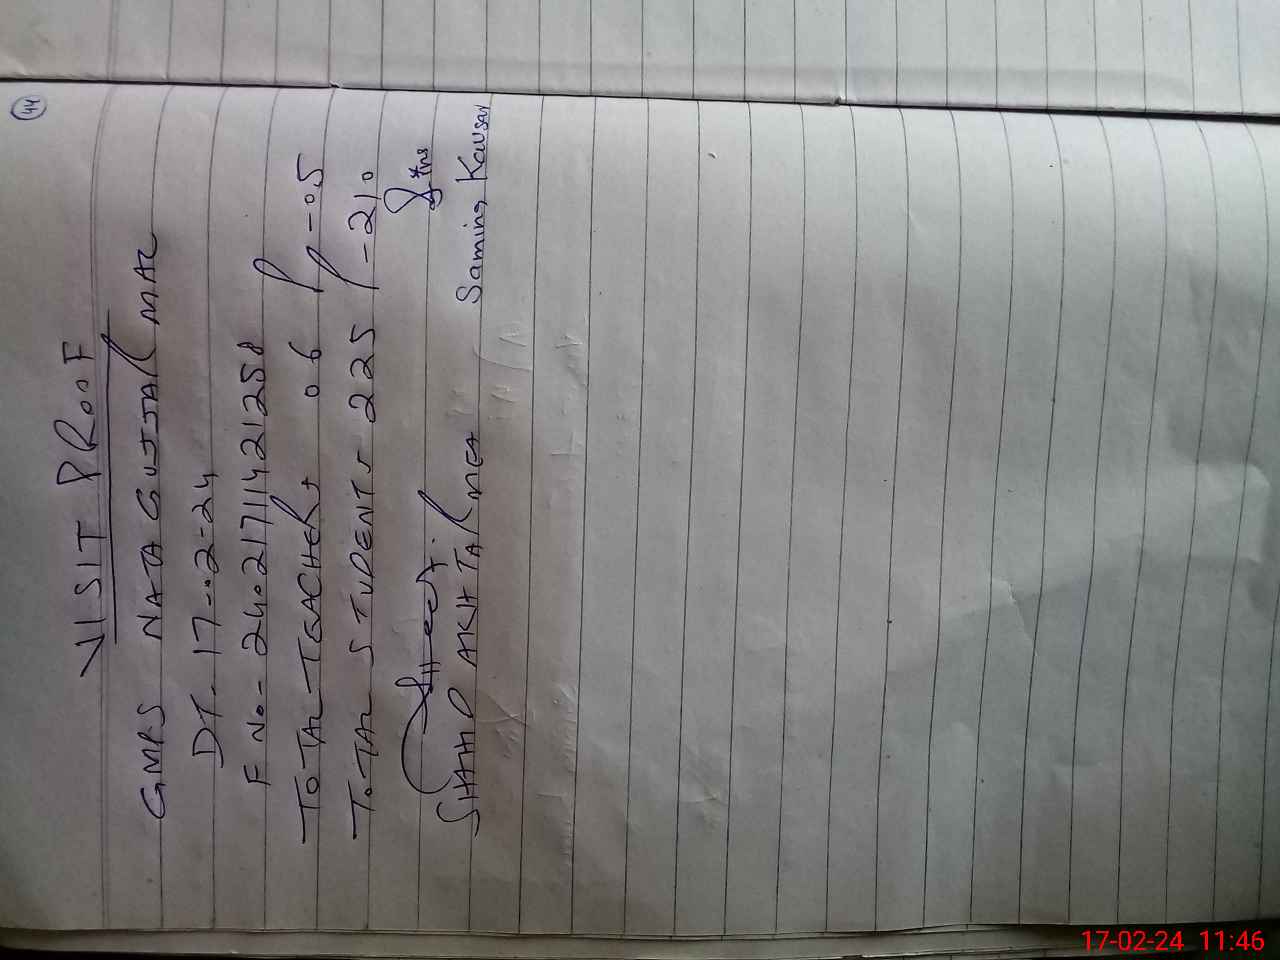 44
VISIT PROOF
GMPS NATA GUJJAR MAL
DT. 17-02-24
F No- 24021711421258
TOTAL TEACHER + 06 P-05
TOTAL STUDENT - 225 P-210
SHAHID AKHTAR MEA Samina Kausar
17-02-24 11:46